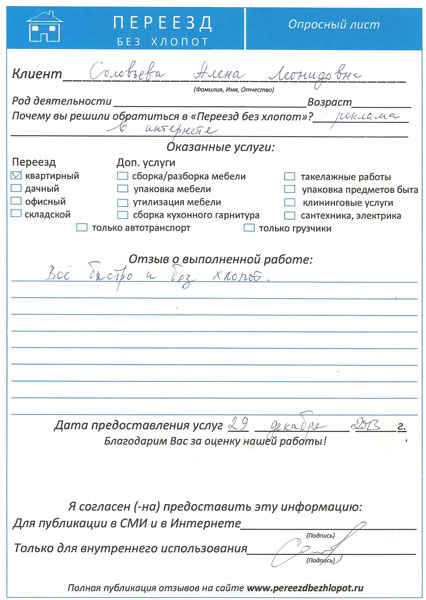 ПЕРЕЕЗД
БЕЗ ХЛОПОТ
Опросный лист
Клиент Соловьева Алена Леонидовна
(Фамилия, Имя, Отчество)
Род деятельности Возраст
Почему вы решили обратиться в «Переезд без хлопот»? реклама
в интернете
Оказанные услуги:
Переезд Доп. услуги
квартирный сборка/разборка мебели такелажные работы
дачный упаковка мебели упаковка предметов быта
офисный утилизация мебели клининговые услуги
складской сборка кухонного гарнитура сантехника, электрика
только автотранспорт только грузчики
Отзыв о выполненной работе:
Всё быстро и без хлопот.
Дата предоставления услуг 29 декабря 2013 г.
Благодарим Вас за оценку нашей работы!
Я согласен (-на) предоставить эту информацию:
Для публикации в СМИ и в Интернете
(Подпись)
Только для внутреннего использования
(Подпись)
Полная публикация отзывов на сайте www.pereezdbezhlopot.ru